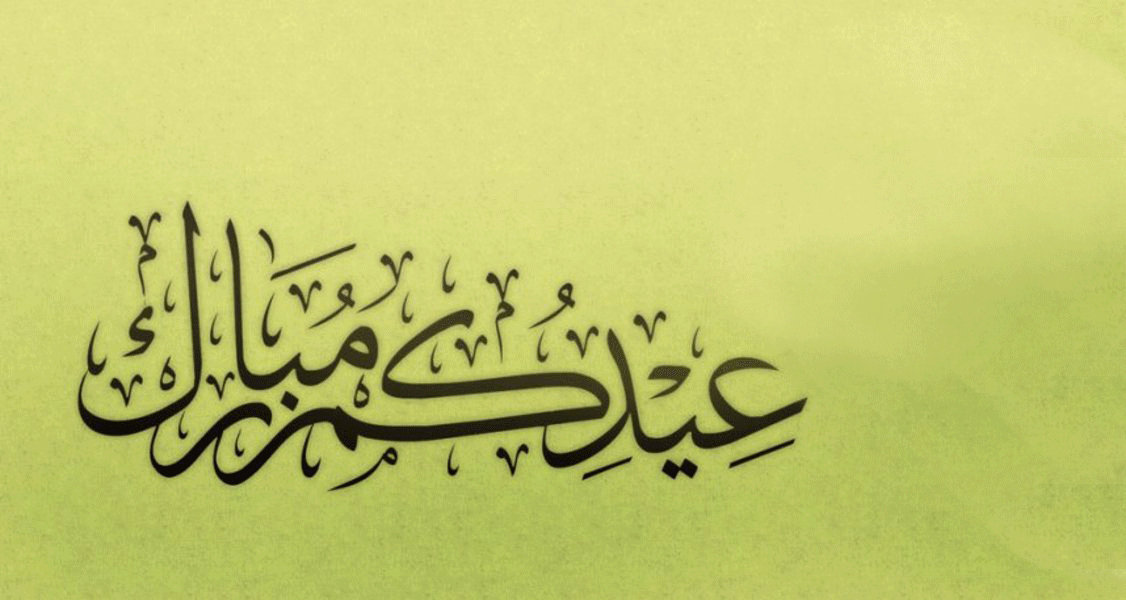 عِيدُكُم مُبَارَك